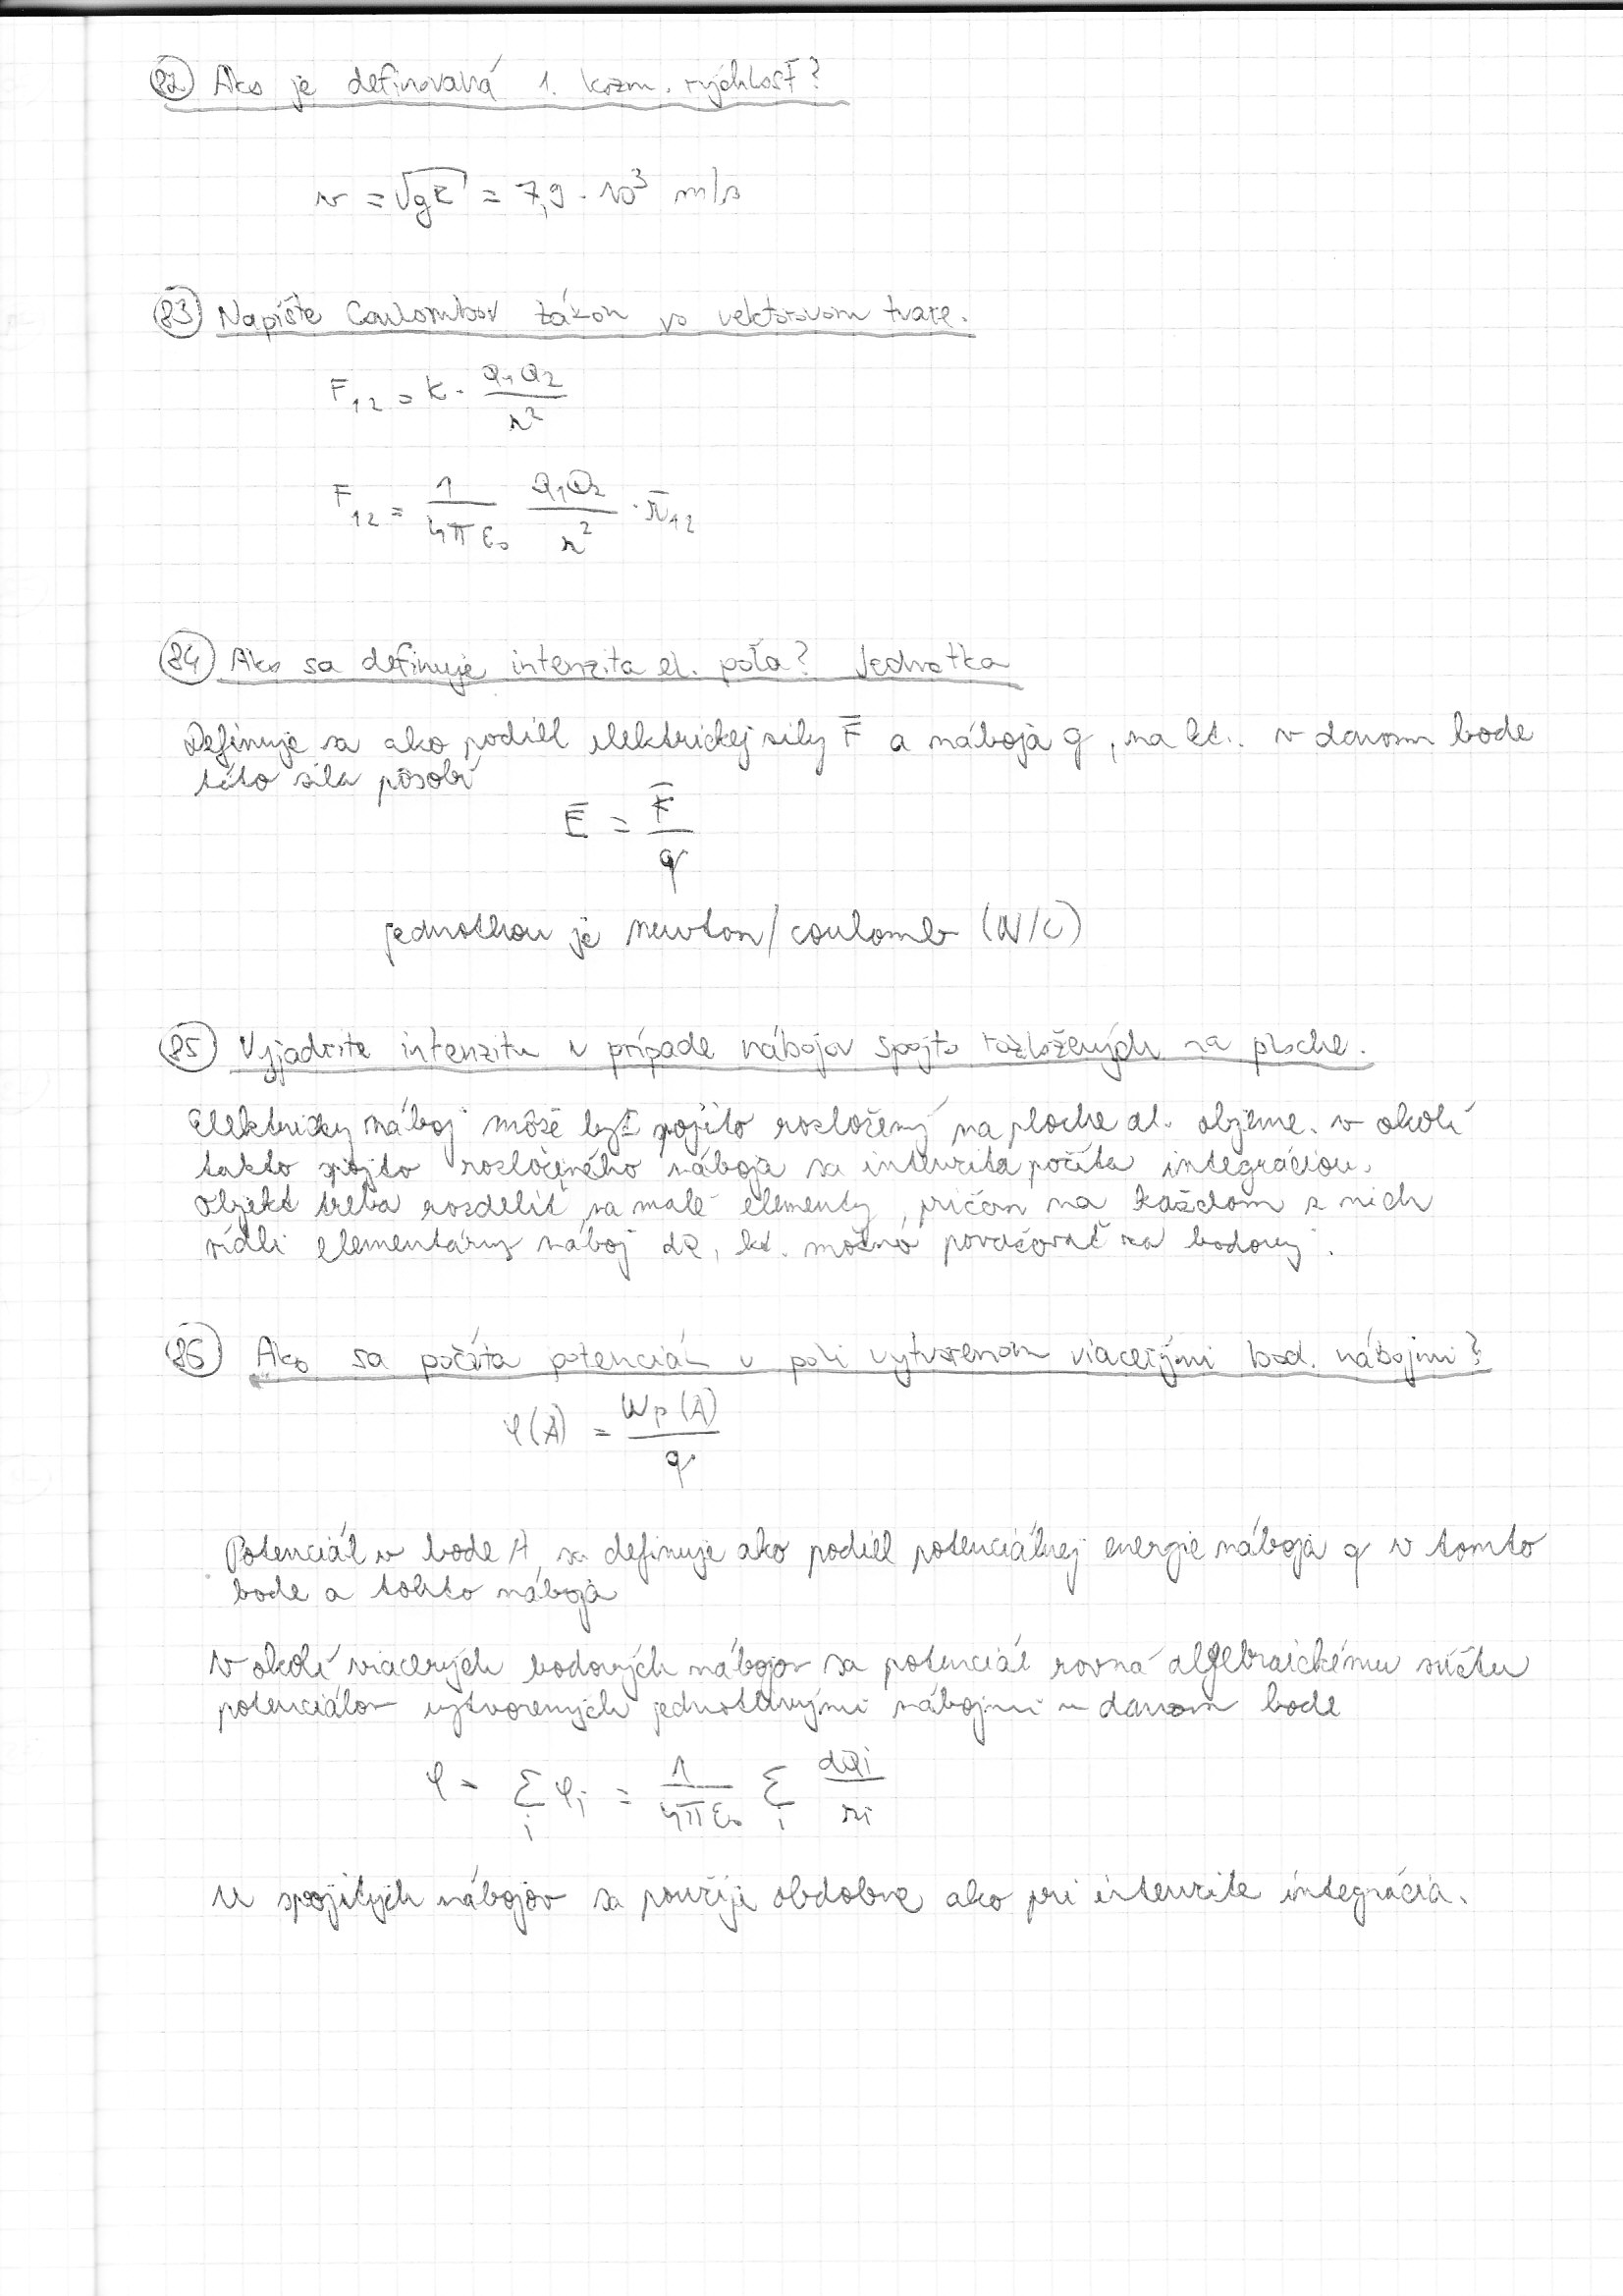 82 Ako je definovaná 1. kozm. rýchlosť?
v = √gR = 7,9 · 10³ m/s
83 Napíšte Coulombov zákon vo vektorovom tvare.
F₁₂ = k · Q₁Q₂ / r²
F₁₂ = 1 / 4πε₀ Q₁Q₂ / r² · r̄₁₂
84 Ako sa definuje intenzita el. poľa? Jednotka
Definuje sa ako podiel elektrickej sily F̄ a náboja q, na kt. v danom bode
táto sila pôsobí
Ē = F̄ / q
jednotkou je newton/coulomb (N/C)
85 Vyjadrite intenzitu v prípade nábojov spojto rozložených na ploche.
Elektrický náboj môže byť spojito rozložený na ploche al. objeme. v okolí
takto spojto rozloženého náboja sa intenzita počíta integráciou.
Objekt treba rozdeliť na malé elementy, pričom na každom z nich
sídli elementárny náboj dQ, kt. možno považovať za bodový.
86 Ako sa počíta potenciál v poli vytvorenom viacerými bod. nábojmi?
φ(A) = Wp(A) / q
Potenciál v bode A sa definuje ako podiel potenciálnej energie náboja q v tomto
bode a tohto náboja
V okolí viacerých bodových nábojov sa potenciál rovná algebraickému súčtu
potenciálov vytvorených jednotlivými nábojmi v danom bode
φ = Σᵢ φᵢ = 1 / 4πε₀ Σᵢ dQi / ri
U spojitých nábojov sa použije obdobne ako pri intenzite integrácia.